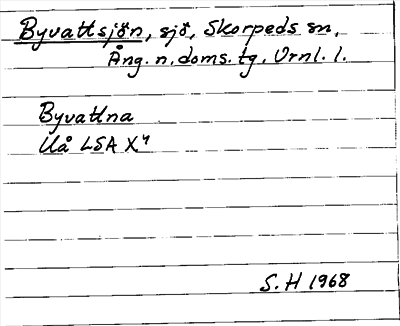 Byvattsjön, sjö, Skorpeds sn,
Ång. n. doms. tg. Vrnl. l.
Byvattna
Uå LSA X4
S. H 1968